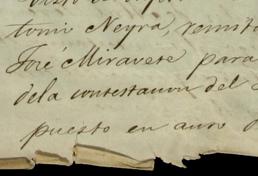 tomi Neyra, remito
José Miravete para
dela contestacion del
puesto en auro